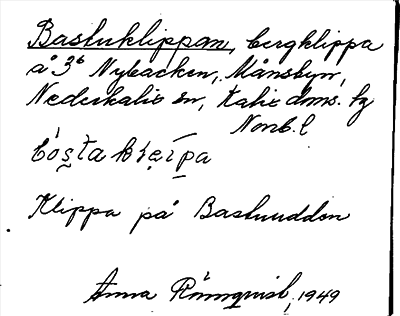 Bastuklippan, bergklippa
å 3⁶ Nybacken, Månsbyn,
Nederkalix sn, Kalix dms. hg
Norrb. l
Klippa på Bastuudden
Anna Rönnqvist, 1949